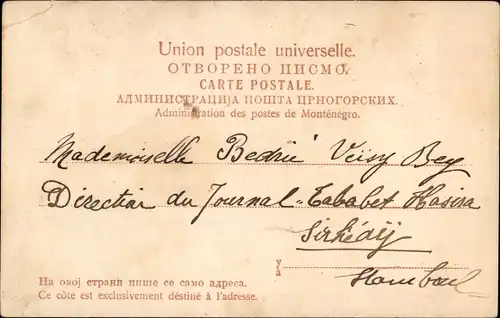 Union postale universelle.
ОТВОРЕНО ПИСМО.
CARTE POSTALE.
АДМИНИСТРАЦИЈА ПОШТА ЦРНОГОРСКИХ.
Administration des postes de Monténégro.
Mademoiselle Bedrié Veisy Bey
Direction du Journal-Tababet Hasira
Sirkédji
У
à
Stamboul
На овој страни пише се само адреса.
Ce côte est exclusivement déstiné à l'adresse.